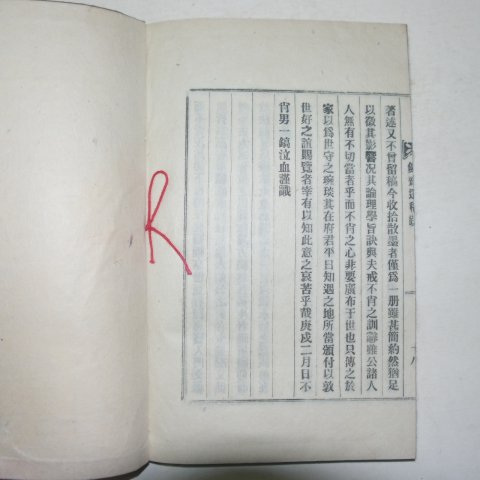 著述又不曾留稿今收拾散墨者僅為一册雖甚簡約然猶足
以徵其影響况其論理學旨訣與夫戒不肖之訓辭雖公諸人
人無有不切當者乎而不肖之心非要廣布于世也只傳之於
家以為世守之琬琰其在府君平日知遇之地所當頒付以敦
世好之誼賜覽者幸有以知此意之哀苦乎哉庚戌二月日不
肖男一鎬泣血謹識